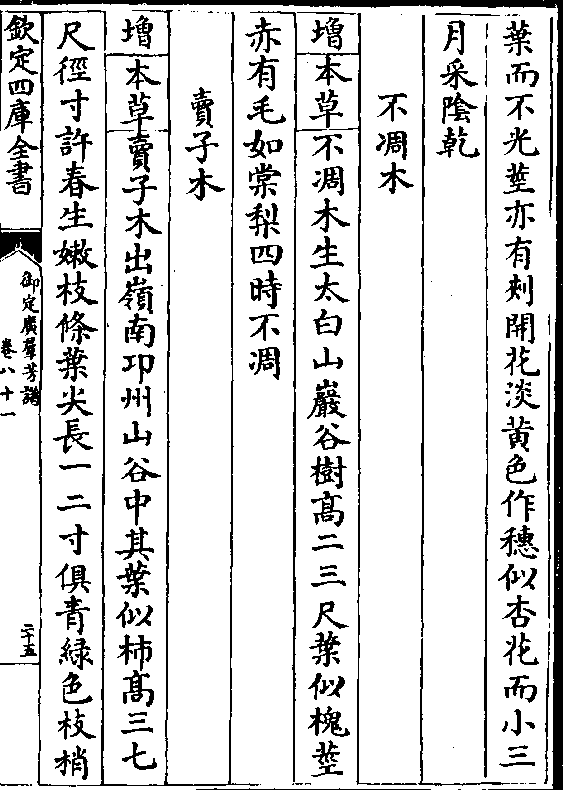 葉而不光莖亦有刺開花淡黄色作穗似杏花而小三
月采陰乾
不凋木
增本草不凋木生太白山巖谷樹髙二三尺葉似槐莖
赤有毛如棠梨四時不凋
賣子木
增本草賣子木出嶺南卭州山谷中其葉似柿髙三七
尺徑寸許春生嫩枝條葉尖長一二寸俱青緑色枝梢
欽定四庫全書
御定廣羣芳譜
卷八十一
二十五